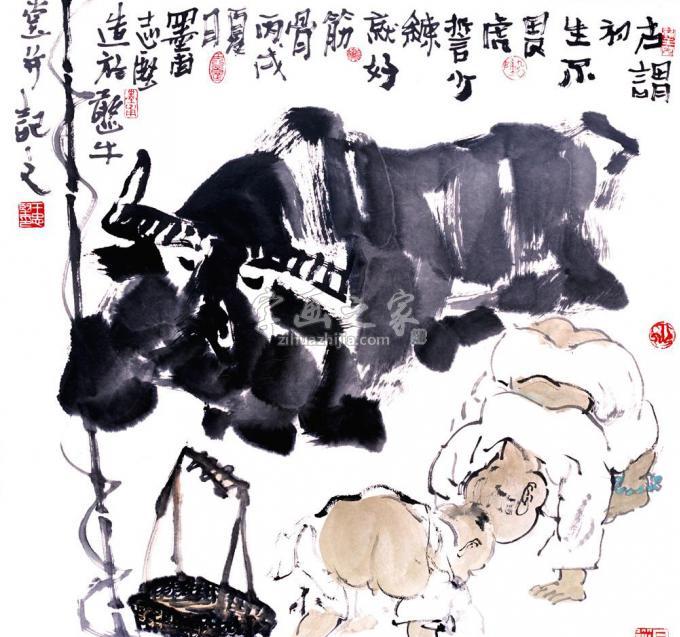 古謂
初
生不
畏
虎
誓少
鍊
就好
筋
骨
丙戌
夏
墨
造於憨牛
堂并記之
字画之家
zihuazhijia.com